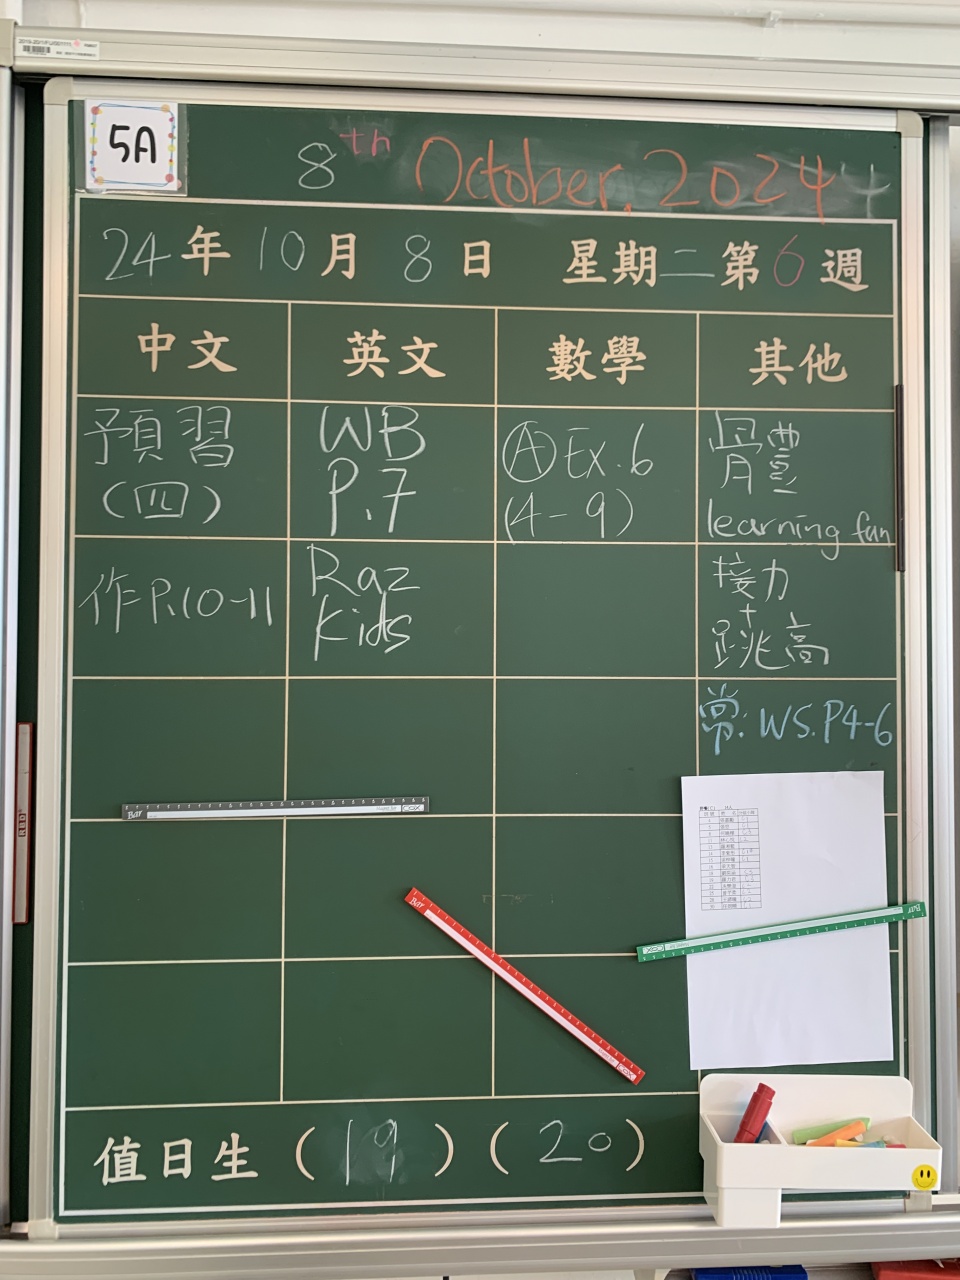 5A
8th October, 2024
24年10月8日 星期二第6週
中文 英文 數學 其他
預習
(四)
WB
P.7
Ⓐ Ex.6
(4-9)
體
learning fun
作P.10-11
Raz
Kids
接力
+
跳高
常: WS. P4-6
Bar
COX
Bar
COX
Bar
COX
值日生 (19) (20)